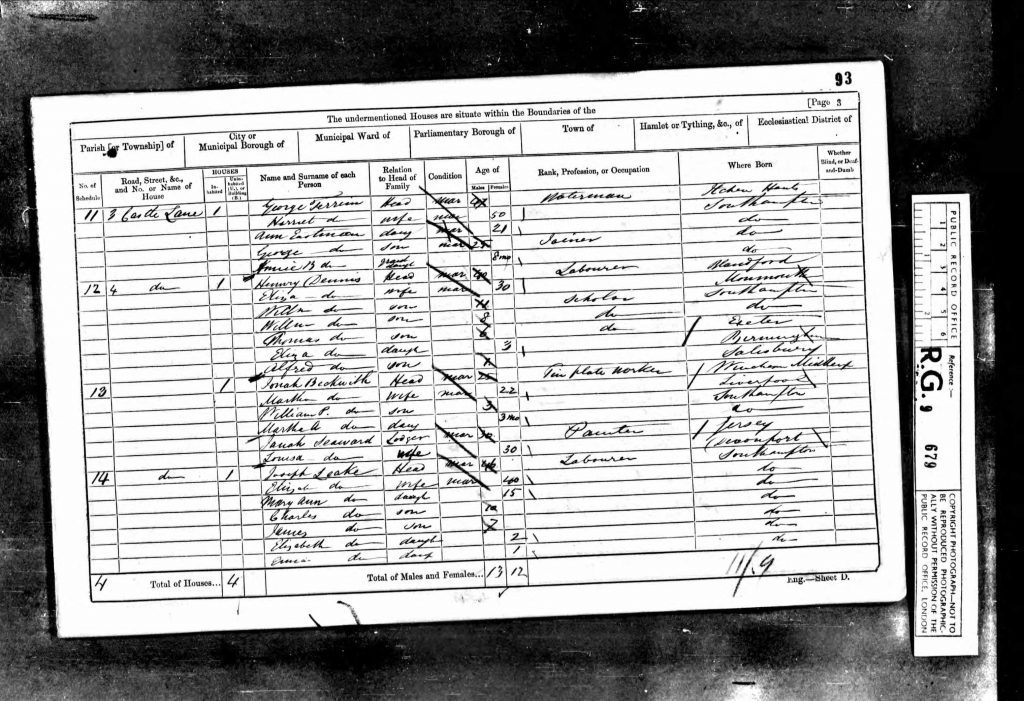 93
[Page 3
The undermentioned Houses are situate within the Boundaries of the
Parish [or Township] of
City or Municipal Borough of
Municipal Ward of
Parliamentary Borough of
Town of
Hamlet or Tything, &c., of
Ecclesiastical District of
No. of Schedule
Road, Street, &c., and No. or Name of House
HOUSES
Inhabited
Uninhabited (U.), or Building (B.)
Name and Surname of each Person
Relation to Head of Family
Condition
Age of
Males
Females
Rank, Profession, or Occupation
Where Born
Whether Blind, or Deaf-and-Dumb
11 3 Castle Lane 1 George Head mar Waterman Hants
Harriet do wife mar 50 Southampton
Ann Eastman daug mar 21 do
George do son mar Joiner do
Annie B do grand daugh 8 mo do
12 4 do 1 Henry Dennis Head mar 40 Labourer Blandford
Eliza do wife mar 30 Monmouth
Willm do son Scholar Southampton
do son 8 do do
Thomas do son 6 do Exeter
Eliza do daugh 3 Birmingham
Alfred do son Salesbury
13 1 Jonah Beckwith Head mar Tin plate worker
Martha do Wife mar 22 Liverpool
William P. do son 3 Southampton
Martha A do daug 3 mo do
Seaward Lodger mar Painter Jersey
Louisa do wife 30 Devonport
14 do 1 Joseph Leake Head mar 46 Labourer Southampton
Elizah do wife mar 40 do
Mary Ann do daugh 15 do
Charles do son 10 do
James do son 7 do
Elizabeth do daugh 2 do
do daug 1 do
4 Total of Houses... 4
Total of Males and Females... 13 12
Eng.—Sheet D.
PUBLIC RECORD OFFICE
1 2 3 4 5 6
Reference :-
R.G. 9 679
COPYRIGHT PHOTOGRAPH—NOT TO BE REPRODUCED PHOTOGRAPHICALLY WITHOUT PERMISSION OF THE PUBLIC RECORD OFFICE, LONDON